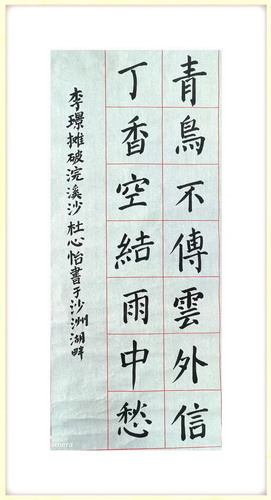 青鳥不傳雲外信
丁香空結雨中愁
李璟摊破浣溪沙杜心怡書于沙洲湖畔